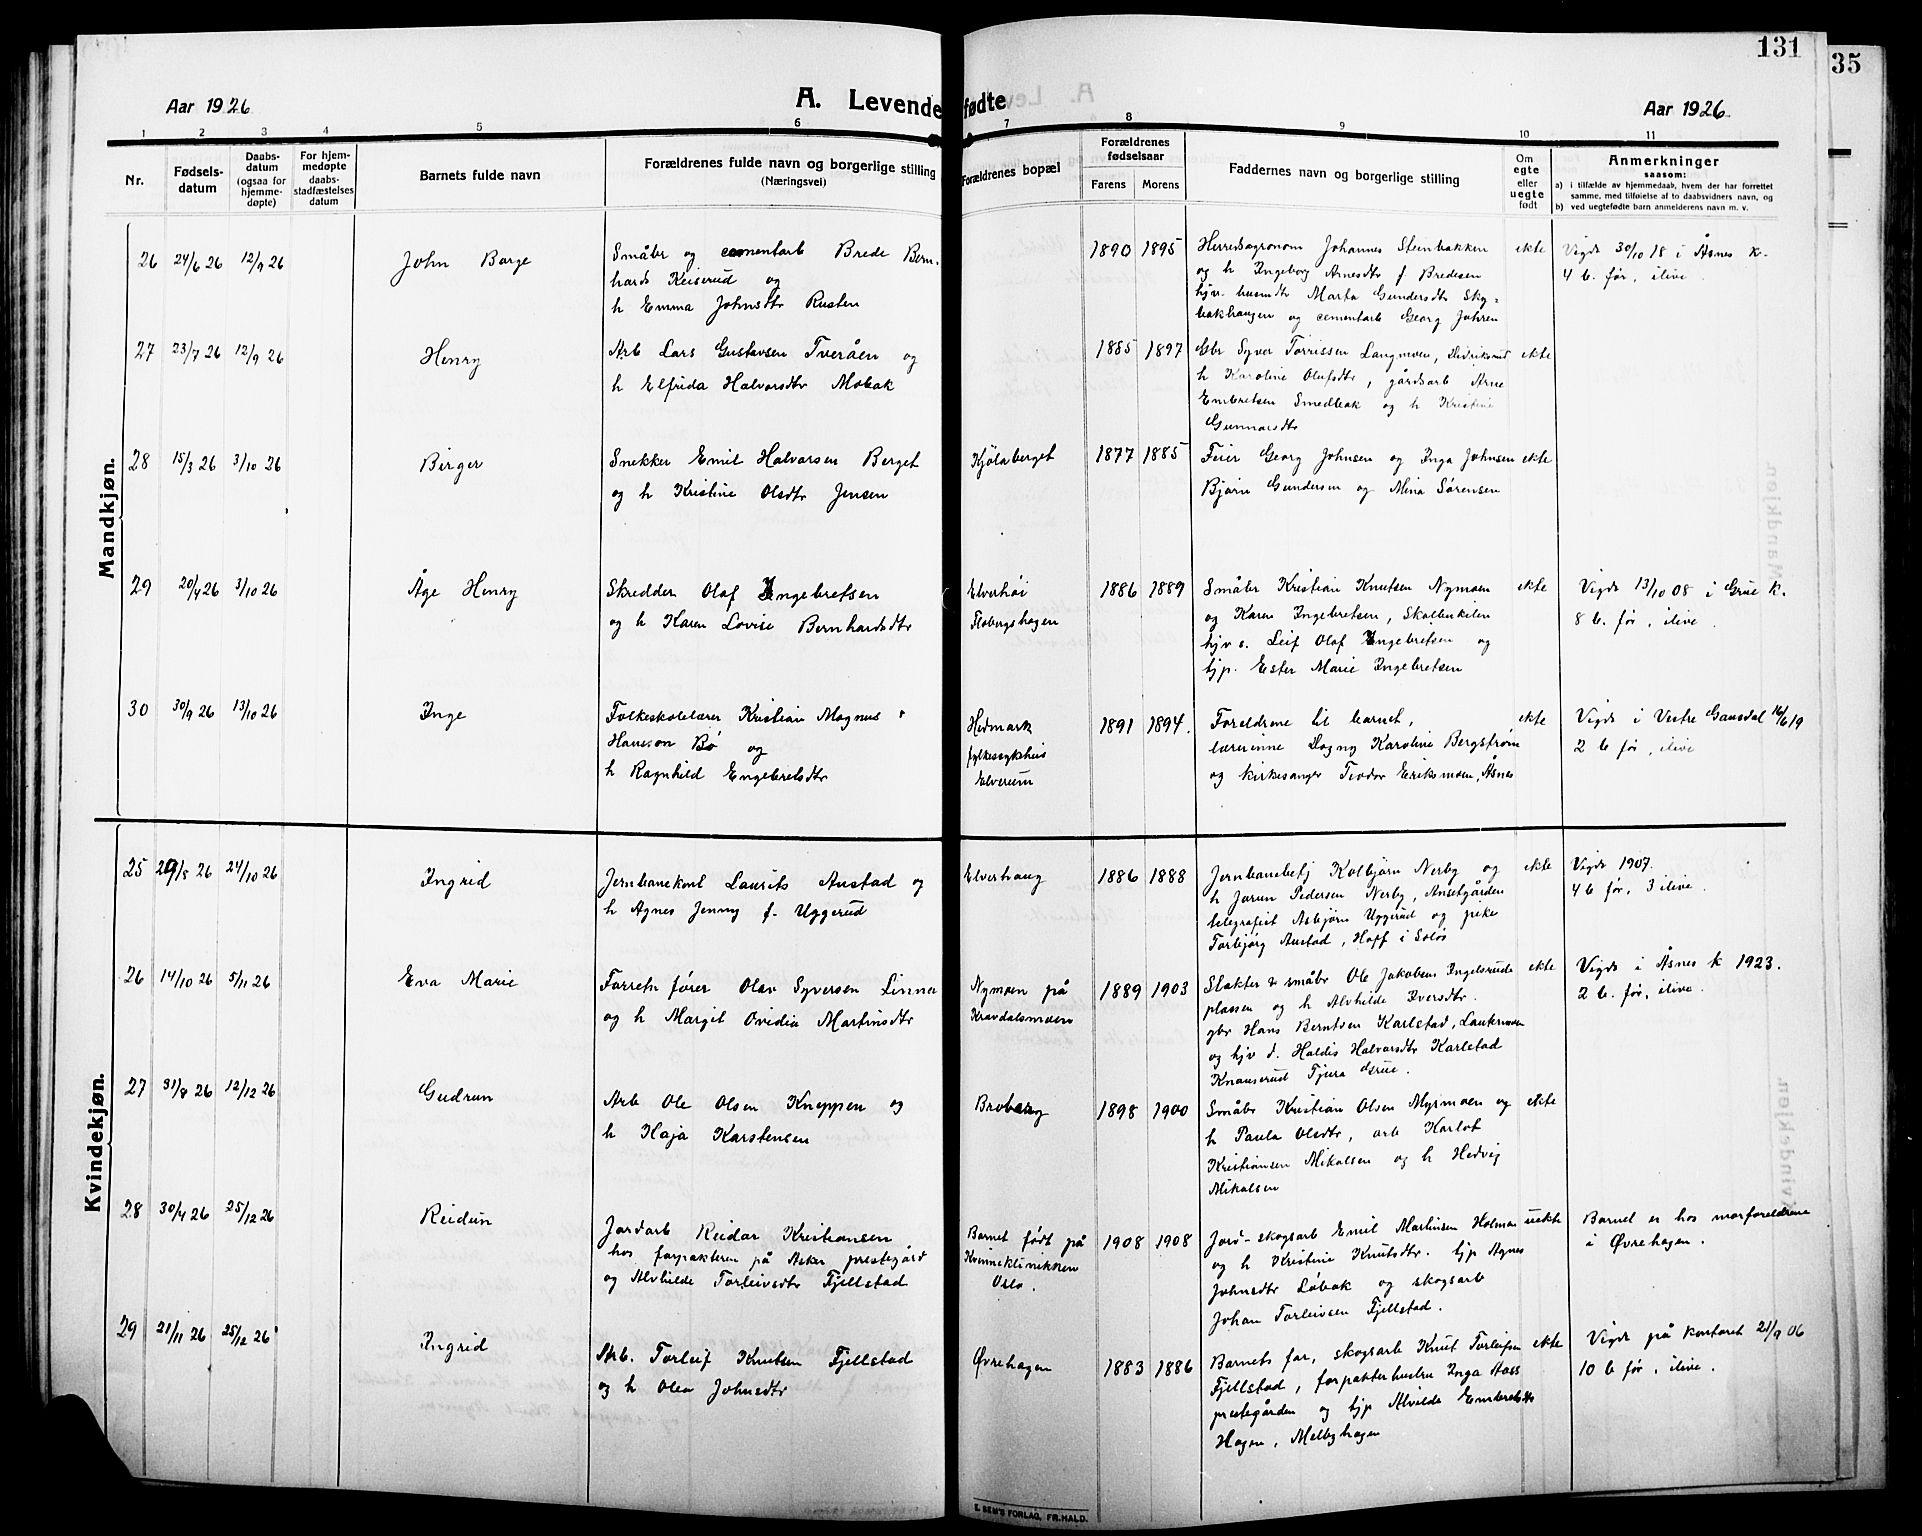 131
35
Aar 1926
A. Levendefødte
Aar 1926
1 2 3 4 5 6 7 8 9 10 11
Nr.
Fødselsdatum
Daabsdatum
(ogsaa for hjemmedøpte)
For hjemmedøpte daabsstadfæstelses datum
Barnets fulde navn
Forældrenes fulde navn og borgerlige stilling
(Næringsvei)
Forældrenes bopæl
Forældrenes fødselsaar
Farens Morens
Faddernes navn og borgerlige stilling
Om egte eller uegte født
Anmerkninger
saasom:
a) i tilfælde av hjemmedaab, hvem der har forrettet
samme, med tilføielse af to daabsvidners navn, og
b) ved uegtefødte barn anmelderens navn m. v.
Mandkjøn.
26 24/6 26 12/9 26 John Borge
Småbr og cementarb Brede Bern-
hards Keiserud og
h Emma Johnsdtr Rusten
1890 1895
Herredsagronom Johannes Steinbakken
og h Ingeborg Arnesdtr f Bredesen
hjv. husmdtr Marta Gundersdtr Sky-
bakhaugen og cementarb Georg Johren
ekte
Vigde 30/10 18 i Åsnes k.
4 b. før, ilive
27 23/7 26 12/9 26 Henry
Arb Lars Gustavsen Tveråen og
h Elfrida Halvorsdtr Mobak
1885 1897
Gbr Syver Torrissen Langmoen,
h Karoline Olufsdtr, gårdsarb Arne
Embretsen Smedbak og h Kristine
Gunnarsdtr
ekte
28 15/3 26 3/10 26 Birger
Snekker Emil Halvorsen Berget
og h Kristine Olsdtr Jensen
Kjølaberget
1877 1885
Feier Georg Johnsen og Inga Johnsen
Bjørn Gundersen og Mina Sørensen
ekte
29 20/4 26 3/10 26 Åge Henry
Skredder Olaf Ingebretsen
og h Karen Lovise Bernhardsdtr
Elverhøi
Flobergshagen
1886 1889
Småbr Kristian Knutsen Nymoen
og Karen Ingebretsen, Skolbukilen
hjv s. Leif Olaf Ingebretsen og
hjp. Ester Marie Ingebretsen
ekte
Vigde 13/10 08 i Grue k.
8 b. før, ilive.
30 30/9 26 13/10 26 Inge
Folkeskolelærer Kristian Magnus
Hansson Bø og
h Ragnhild Engebretsdtr
Hedmark
fylkessykehus
Elverum
1891 1894.
Foreldrene til barnet,
lærerinne Dagny Karoline Bergstrøm
og kirkesanger Teodor Eriksmoen, Åsnes
ekte
Vigde i Vestre Gausdal 16/6 19
2 b før, ilive
Kvindekjøn.
25 29/8 26 24/10 26 Ingrid
Jernbanekont Laurits Austad og
h Agnes Jenny f. Uggerud
Elverhaug
1886 1888
Jernbanebetj Kolbjørn Nerby og
h Jørun Pedersen Nerby, Ansetgården
telegrafist Asbjørn Uggerud og pike
Torbjørg Austad, Hoff i Solør
ekte
Vigde 1907.
4 b før, 3 ilive.
26 14/10 26 5/11 26 Eva Marie
Forretn fører Olav Syversen Linna
og h Margit Ovidia Martinsdtr
Nymoen på
Kravdalsmoen
1889 1903
Slakter & småbr Ole Jakobsen Ingelsruds
plassen og h Alvhilde Iversdtr.
gbr Hans Berntsen Karlstad, Laukmoen
og hjv d. Haldis Halvorsdtr Karlstad
Knauserud Tjura Grue.
ekte
Vigde i Åsnes k 1923.
2 b. før, ilive.
27 31/8 26 12/12 26 Gudrun
Arb Ole Olsen Kneppen og
h Kaja Karstensen
Broberg
1898 1900
Småbr Kristian Olsen Myrmoen og
h Paula Olsdtr, arb Karlot
Kristiansen Mikalsen og h Hedvig
Mikalsen
ekte
28 30/4 26 25/12 26 Reidun
Jordarb Reidar Kristiansen
hos forpakteren på Asker prestegård
og Alvhilde Torleivsdtr Fjellstad
Barnet født på
Kvinneklinikken
Oslo.
1908 1908
Jord-skogsarb Emil Martinsen Holmen
og h Kristine Knutsdtr. hjp Agnes
Johnsdtr Løbak og skogsarb
Johan Torleivsen Fjellstad.
uekte
Barnet er hos morforeldrene
i Øvrehagen.
29 21/11 26 25/12 26 Ingrid
Arb. Torleif Knutsen Fjellstad
og h Olea Johnsdtr
Øvrehagen
1883 1886
Barnets far, skogsarb Knut Torleifsen
Fjellstad, forpakterhustru Inga Aass
prestegården og hjp Alvilde Embretsdtr
Hagen, Melbyhagen
ekte
Vigde på kontoret 21/9 06
10 b før, ilive.
E. SEM'S FORLAG, FR.HALD.